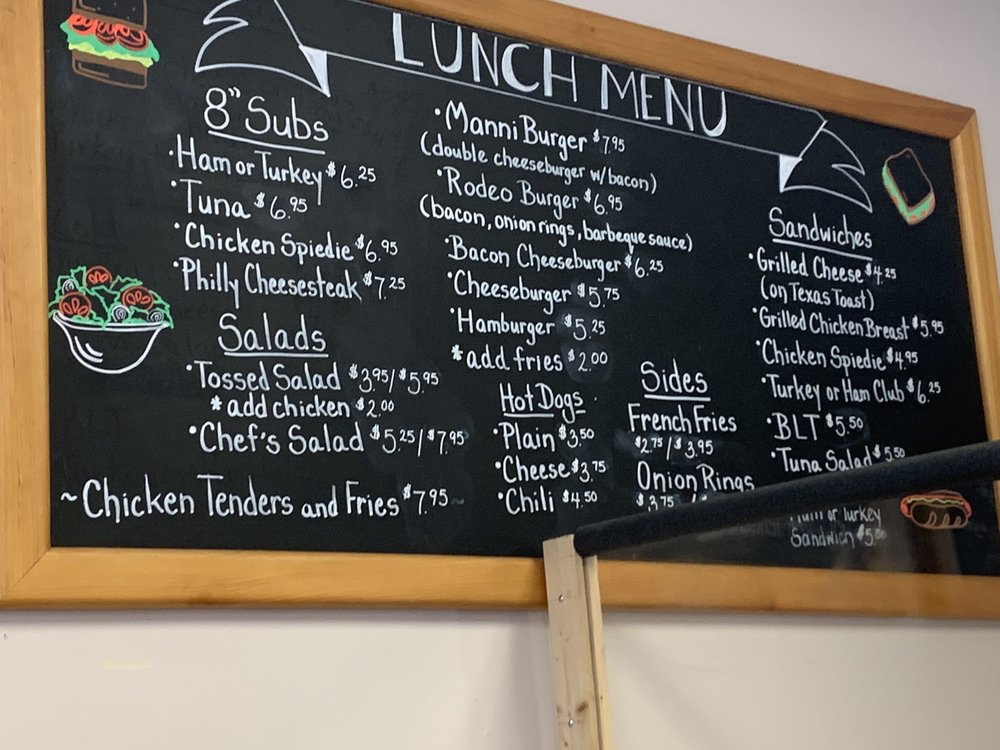 LUNCH MENU
8" Subs
·Ham or Turkey $6.25
·Tuna $6.95
·Chicken Spiedie $6.95
·Philly Cheesesteak $7.25
Salads
·Tossed Salad $3.95/$5.95
*add chicken $2.00
·Chef's Salad $5.25/$7.95
~Chicken Tenders and Fries $7.95~
·Manni Burger $7.95
(double cheeseburger w/bacon)
·Rodeo Burger $6.95
(bacon, onion rings, barbeque sauce)
·Bacon Cheeseburger $6.25
·Cheeseburger $5.75
·Hamburger $5.25
*add fries $2.00
Hot Dogs
·Plain $3.50
·Cheese $3.75
·Chili $4.50
Sides
French Fries
$2.75/$3.95
Onion Rings
$3.75 /
Sandwiches
·Grilled Cheese $4.25
(on Texas Toast)
·Grilled Chicken Breast $5.95
·Chicken Spiedie $4.95
·Turkey or Ham Club $6.25
·BLT $5.50
·Tuna Salad $5.50
Ham or Turkey
Sandwich